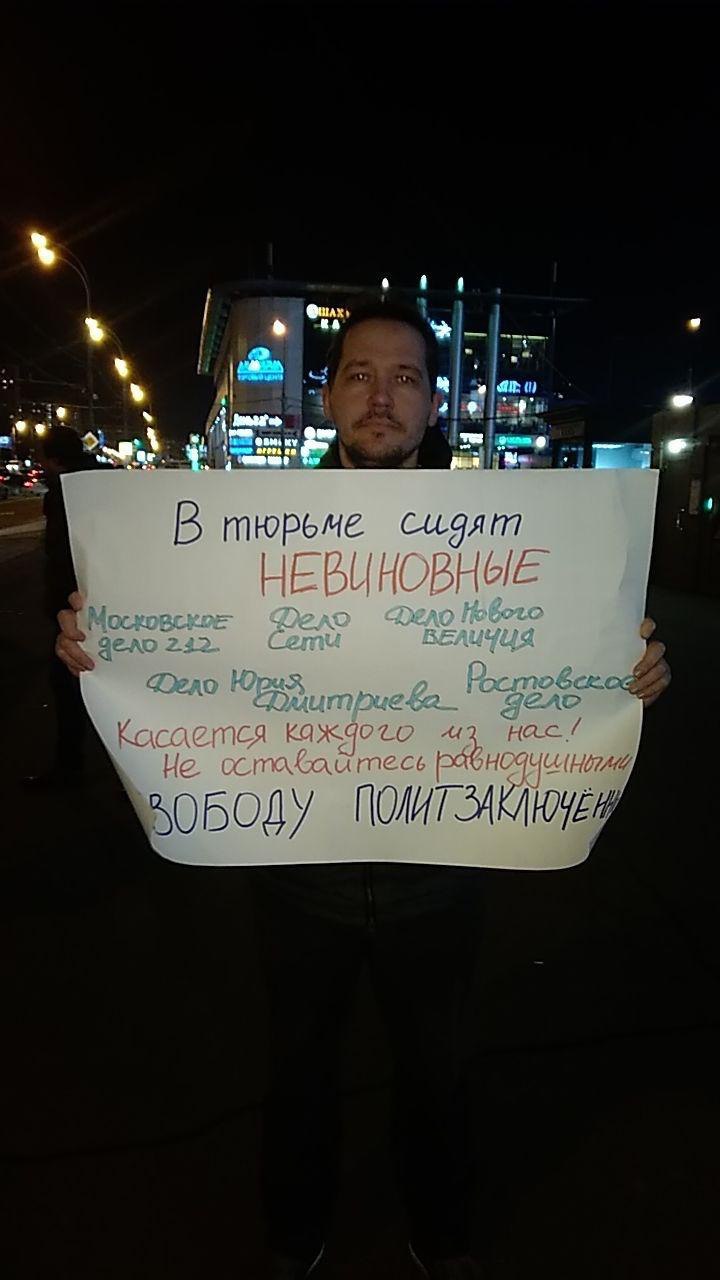 ШАХ
ТОРГОВЫЙ ЦЕНТР
В тюрьме сидят
НЕВИНОВНЫЕ
Московское Дело Дело Нового
дело 212 Сети ВЕЛИЧИЯ
Дело Юрия Ростовское
Дмитриева дело
Касается каждого из нас!
Не оставайтесь равнодушными
ВОБОДУ ПОЛИТЗАКЛЮЧЁНН